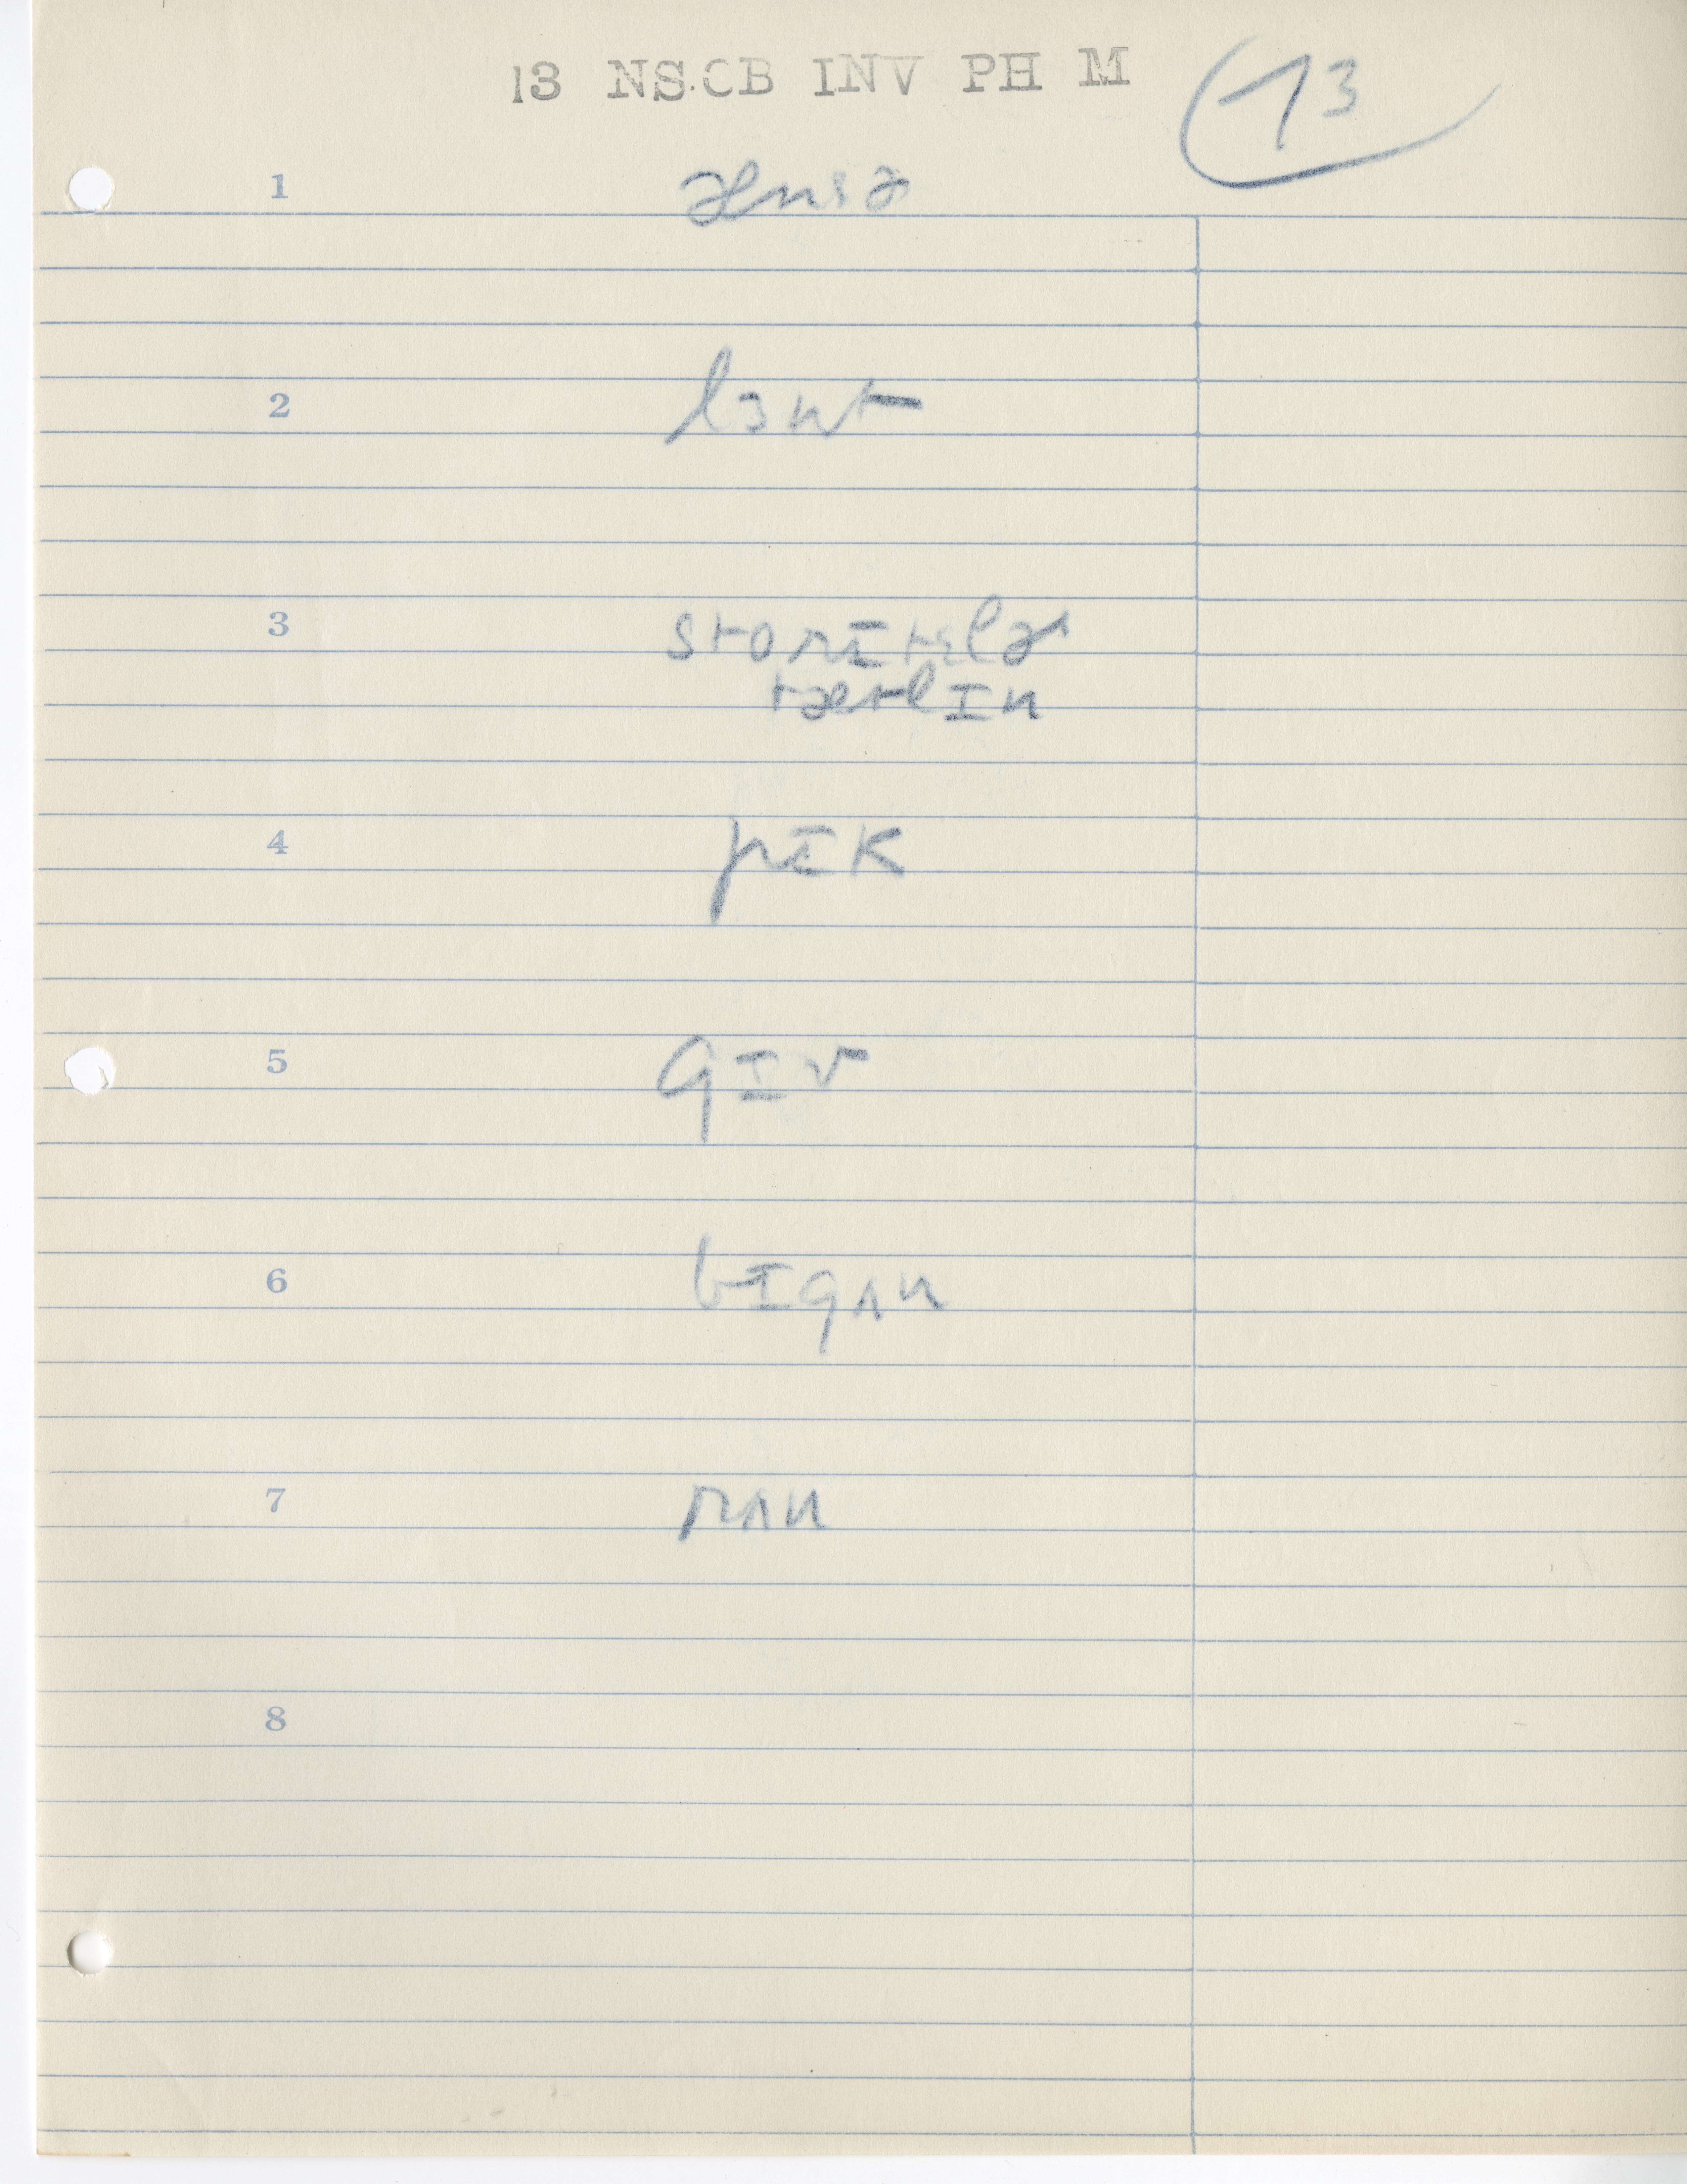 13 NS.CB INV PH M
13
1 ænsɚ
2 lɜnt
3 storītɛlɚ
tætlɪn
4 pīk
5 gɪv
6 bɪgʌn
7 rʌn
8